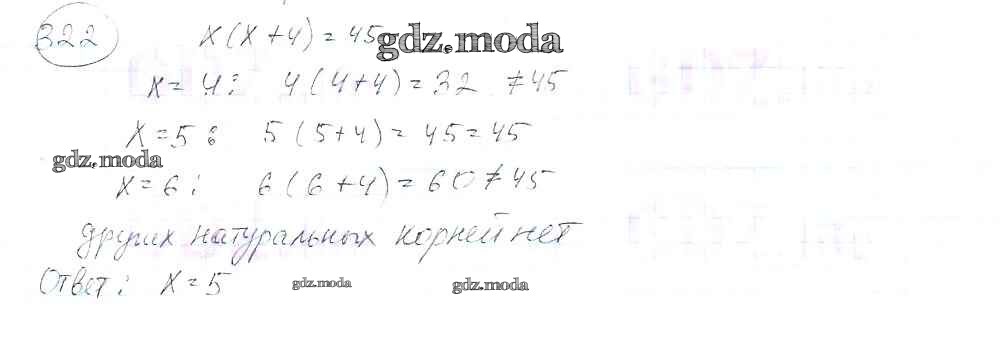 322 x(x+4) = 45 gdz.moda
x = 4: 4(4+4) = 32 ≠ 45
x = 5: 5(5+4) = 45 = 45
gdz.moda
x = 6: 6(6+4) = 60 ≠ 45
других натуральных корней нет
Ответ: x = 5 gdz.moda gdz.moda